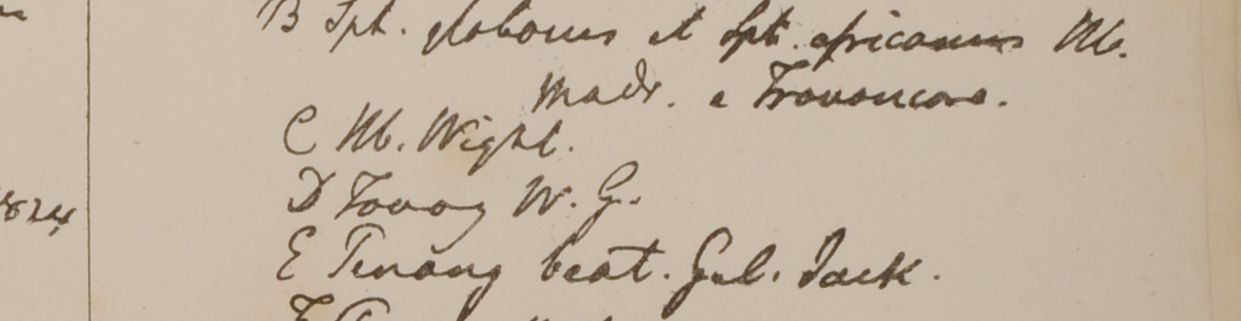 B Sph. globosus et Sph. africanus Hb.
Madr. e Travancore.
C Hb. Wight.
D Tavoy W. G.
E Penang beat. Gul. Jack.
1824